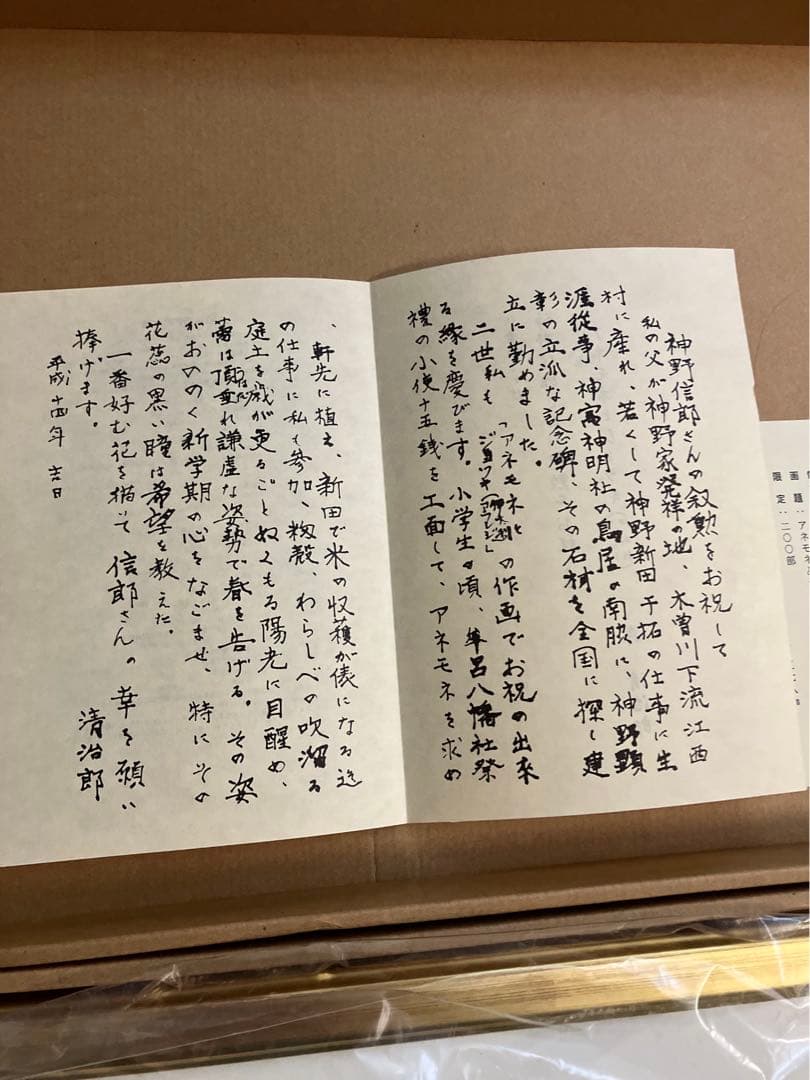 神野信郎さんの叙勲をお祝して
私の父が神野家発祥の地、木曽川下流江西
村に産れ、若くして神野新田干拓の仕事に生
涯従事、神富神明社の鳥居の南脇に、神野顕
彰の立派な記念碑、その石材を全国に探し建
立に勤めました。
二世私も「アネモネ」の作画でお祝の出来
る縁を慶びます。小学生の頃、牟呂八幡社祭
禮の小使十五銭を工面して、アネモネを求め
、軒先に植え、新田で米の収穫が俵になる迄
の仕事に私も参加、籾殻、わらしべの吹溜る
庭土を歳が更るごとぬくもる陽光に目醒め、
蕾は頂垂れ謙虚な姿勢で春を告げる。その姿
がおののく新学期の心をなごませ、特にその
花蕊の黒い瞳は希望を教えた。
一番好む花を描いて信郎さんの幸を願い
捧げます。
清治郎
平成十四年 吉日
画題：アネモネ
限定：二〇〇部